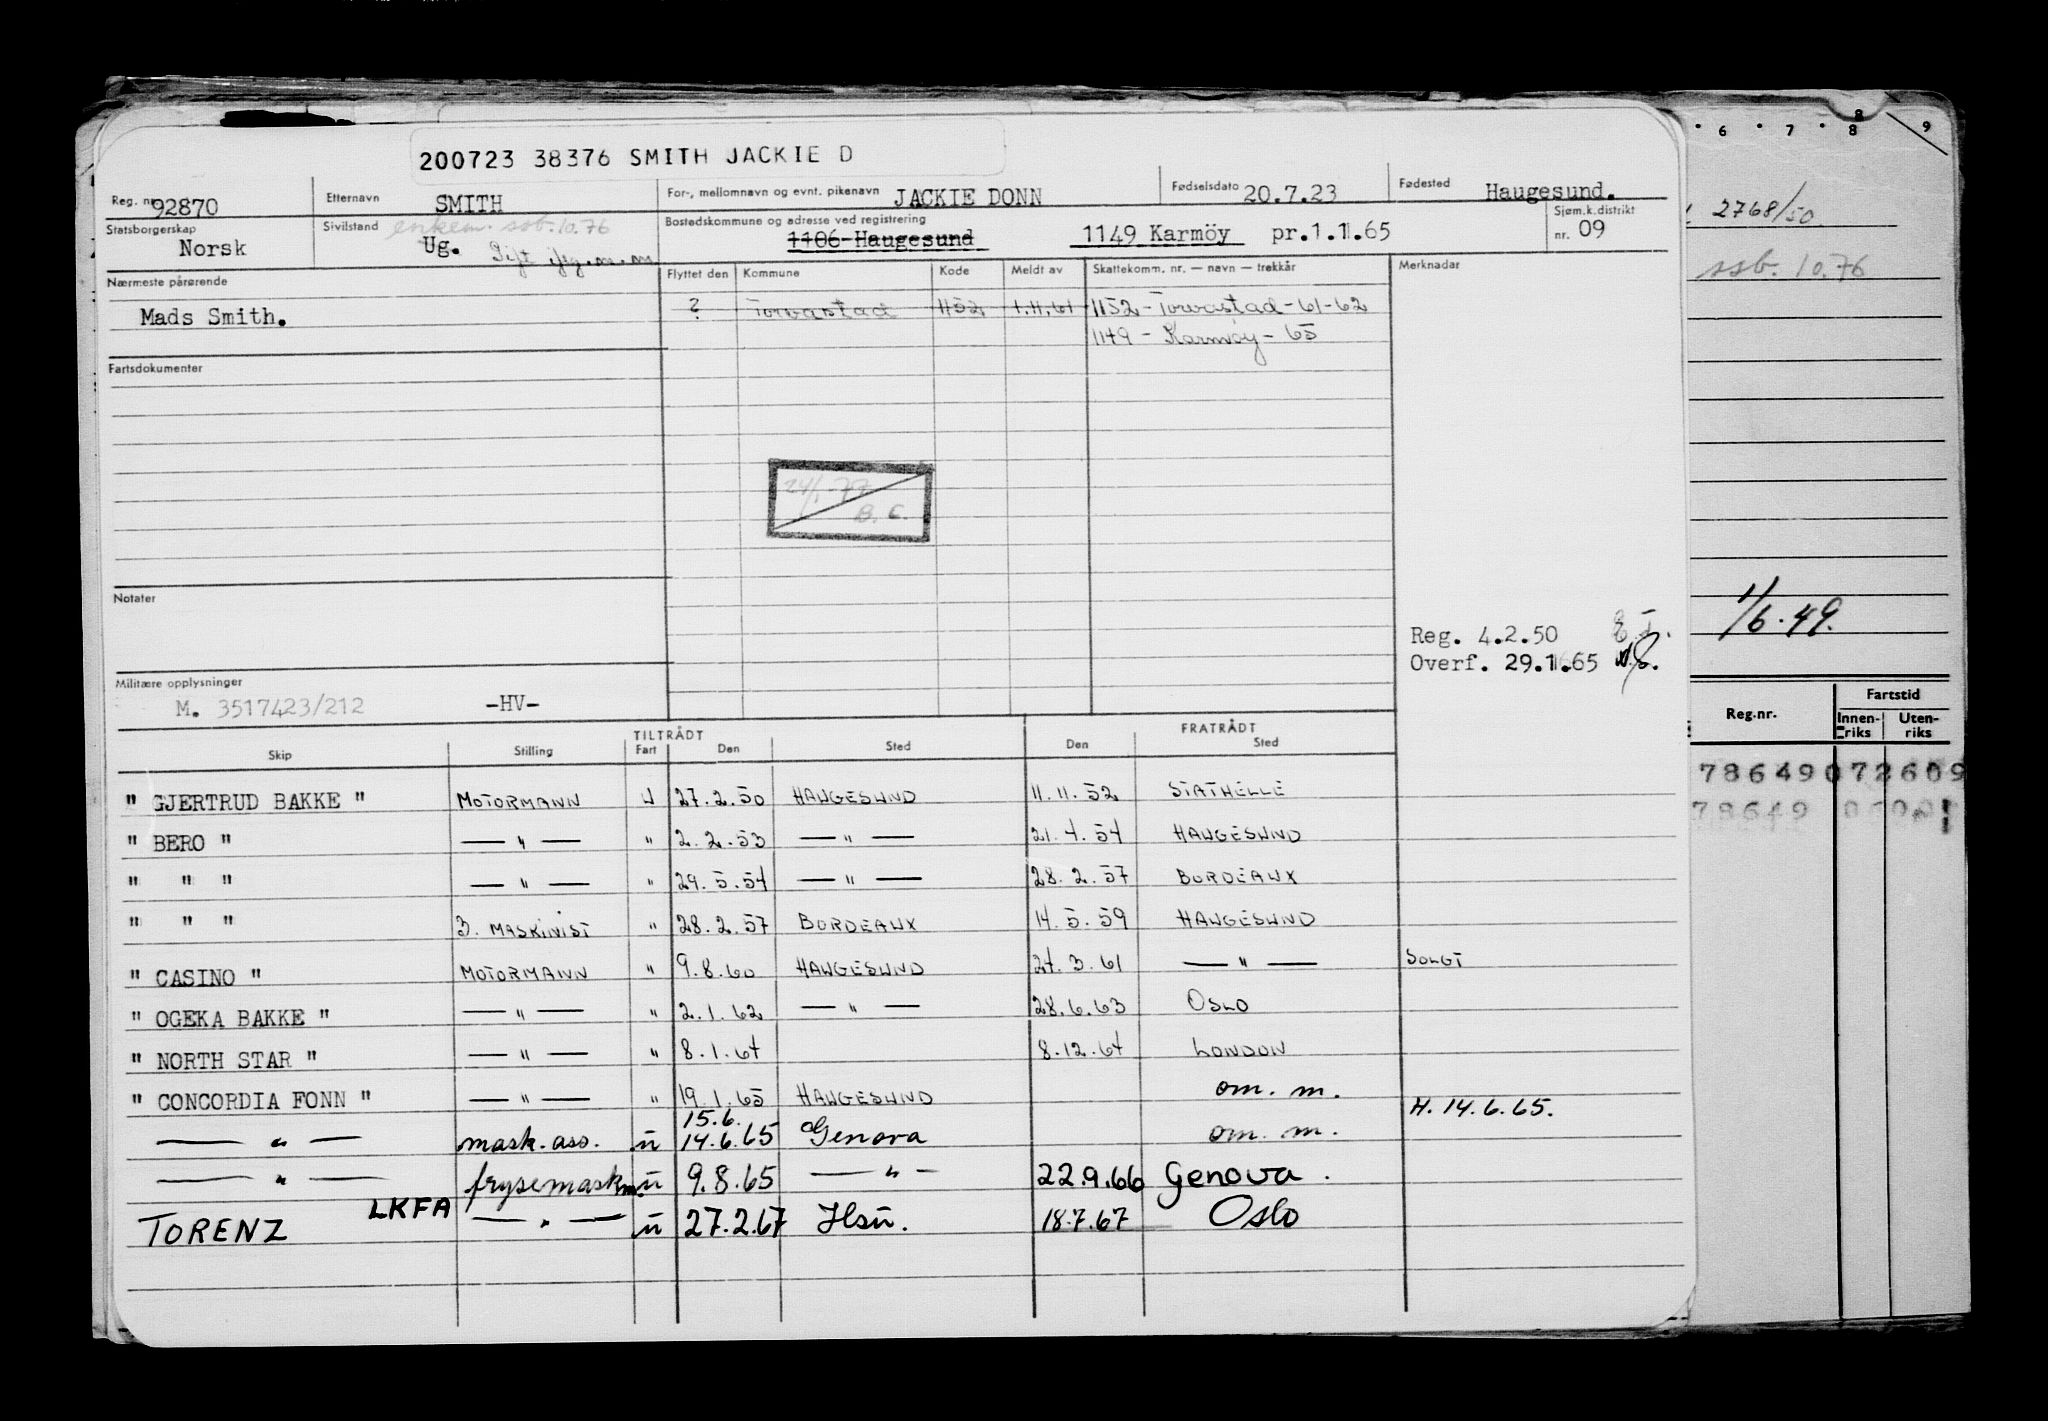 200723 38376 SMITH JACKIE D
Reg. nr. 92870
Etternavn SMITH
For-, mellomnavn og evnt. pikenavn JACKIE DONN
Fødselsdato 20.7.23
Fødested Haugesund.
Statsborgerskap Norsk
Sivilstand enkem. ssb. 10.76
Ug. Gift
Bostedskommune og adresse ved registrering
1106-Haugesund 1149 Karmöy pr.1.1.65
Sjøm.k.distrikt nr. 09
Nærmeste pårørende
Mads Smith.
Flyttet den Kommune Kode Meldt av Skattekomm. nr. — navn — trekkår Merknader
? Torvastad 1152 1.11.61 1152 - Torvastad - 61-62
1149 - Karmöy - 65
Fartsdokumenter
24/1-77
B. C.
Notater
Reg. 4.2.50
Overf. 29.1.65
Militære opplysninger
M. 3517423/212 -HV-
TILTRÅDT FRATRÅDT
Skip Stilling Fart Den Sted Den Sted
" GJERTRUD BAKKE " MOTORMANN U 27.2.50 HAUGESUND 11.11.52 STATHELLE
" BERO " — " — " 2.2.53 — " — 21.4.54 HAUGESUND
" " " — " — " 29.5.54 — " — 28.2.57 BORDEAUX
" " " 3. MASKINIST " 28.2.57 BORDEAUX 14.5.59 HAUGESUND
" CASINO " MOTORMANN " 9.8.60 HAUGESUND 24.3.61 — " — SOLGT
" OGEKA BAKKE " — " — " 2.1.62 — " — 28.6.63 OSLO
" NORTH STAR " — " — " 8.1.64 8.12.64 LONDON
" CONCORDIA FONN " — " — " 19.1.65 HAUGESUND om. m.
H. 14.6.65.
15.6.
— " — mask. ass. u 14.6.65 Genova om. m.
— " — frysemaskm. u 9.8.65 — " — 22.9.66 Genova.
TORENZ LKFA — " — u 27.2.67 Hsu. 18.7.67 Oslo
6 7 8 9
8
2768/50
ssb. 10.76
1/6.49.
Reg.nr.
Fartstid
Innen-riks Uten-riks
78649 072609
78649